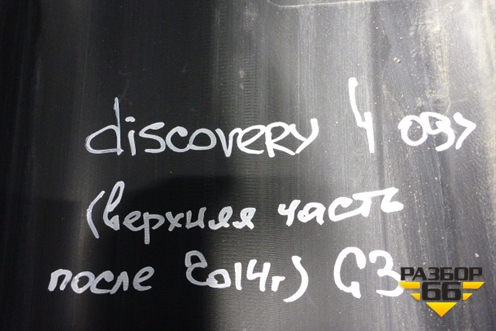 discovery 4 09>
(верхняя часть
после 2014г) G3
РАЗБОР
66